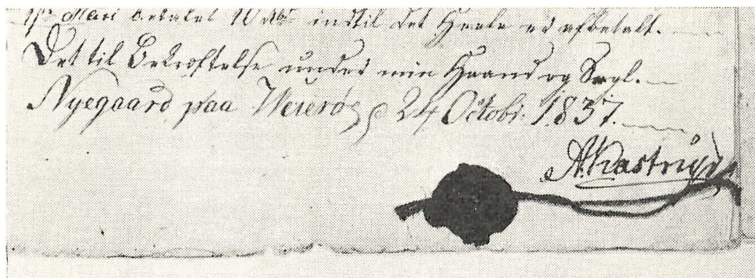 1ste Marti betales 10 Rbd indtil det Heele er afbetalt.
Det til Bekræftelse under min Haand og Segl.
Nyegaard paa Weierøe 24 Octobr. 1837.
A. Kastrup